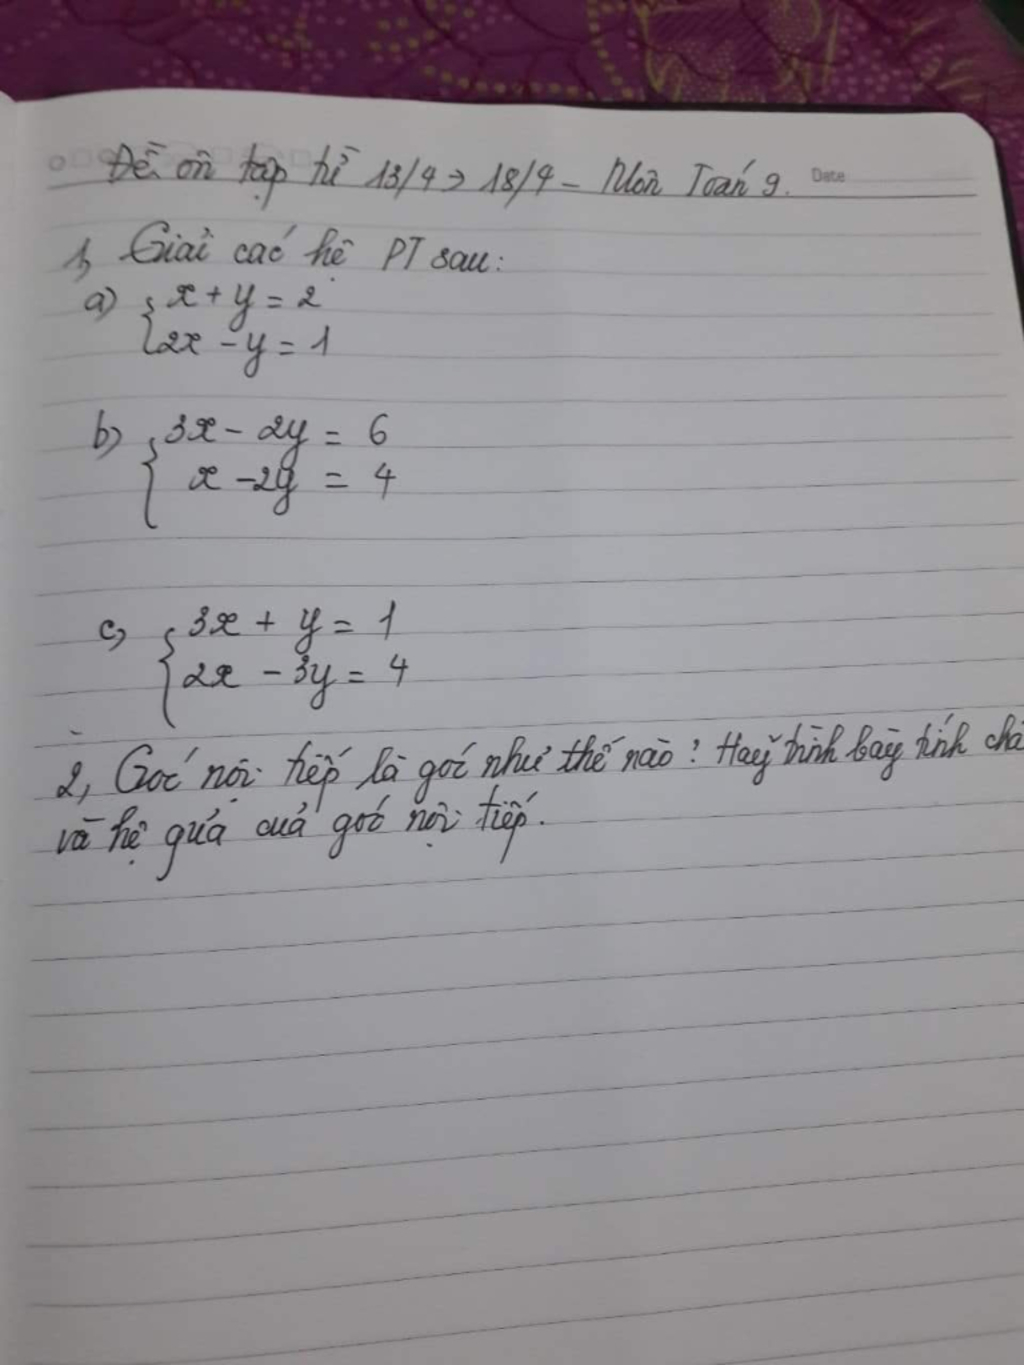 Đề ôn tập từ 13/4 → 18/4 - Môn Toán 9.
Date
1, Giải các hệ PT sau:
a) { x + y = 2
2x - y = 1
b) { 3x - 2y = 6
x - 2y = 4
c, { 3x + y = 1
2x - 3y = 4
2, Góc nội tiếp là góc như thế nào? Hãy trình bày tính chấ
và hệ quả của góc nội tiếp.